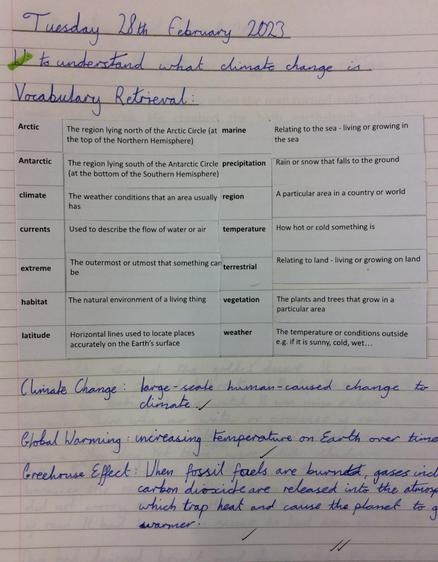 Tuesday 28th February 2023
LI to understand what climate change is
Vocabulary Retrieval:
Arctic The region lying north of the Arctic Circle (at marine Relating to the sea - living or growing in
the top of the Northern Hemisphere) the sea
Antarctic The region lying south of the Antarctic Circle precipitation Rain or snow that falls to the ground
(at the bottom of the Southern Hemisphere)
climate The weather conditions that an area usually region A particular area in a country or world
has
currents Used to describe the flow of water or air temperature How hot or cold something is
extreme The outermost or utmost that something can terrestrial Relating to land - living or growing on land
be
habitat The natural environment of a living thing vegetation The plants and trees that grow in a
particular area
latitude Horizontal lines used to locate places weather The temperature or conditions outside
accurately on the Earth's surface e.g. if it is sunny, cold, wet...
Climate Change: large-scale human-caused change to
climate.
Global Warming: increasing temperature on Earth over time
Greehouse Effect: When fossil fuels are burnt, gases incl
carbon dioxide are released into the atmosp
which trap heat and cause the planet to g
warmer.